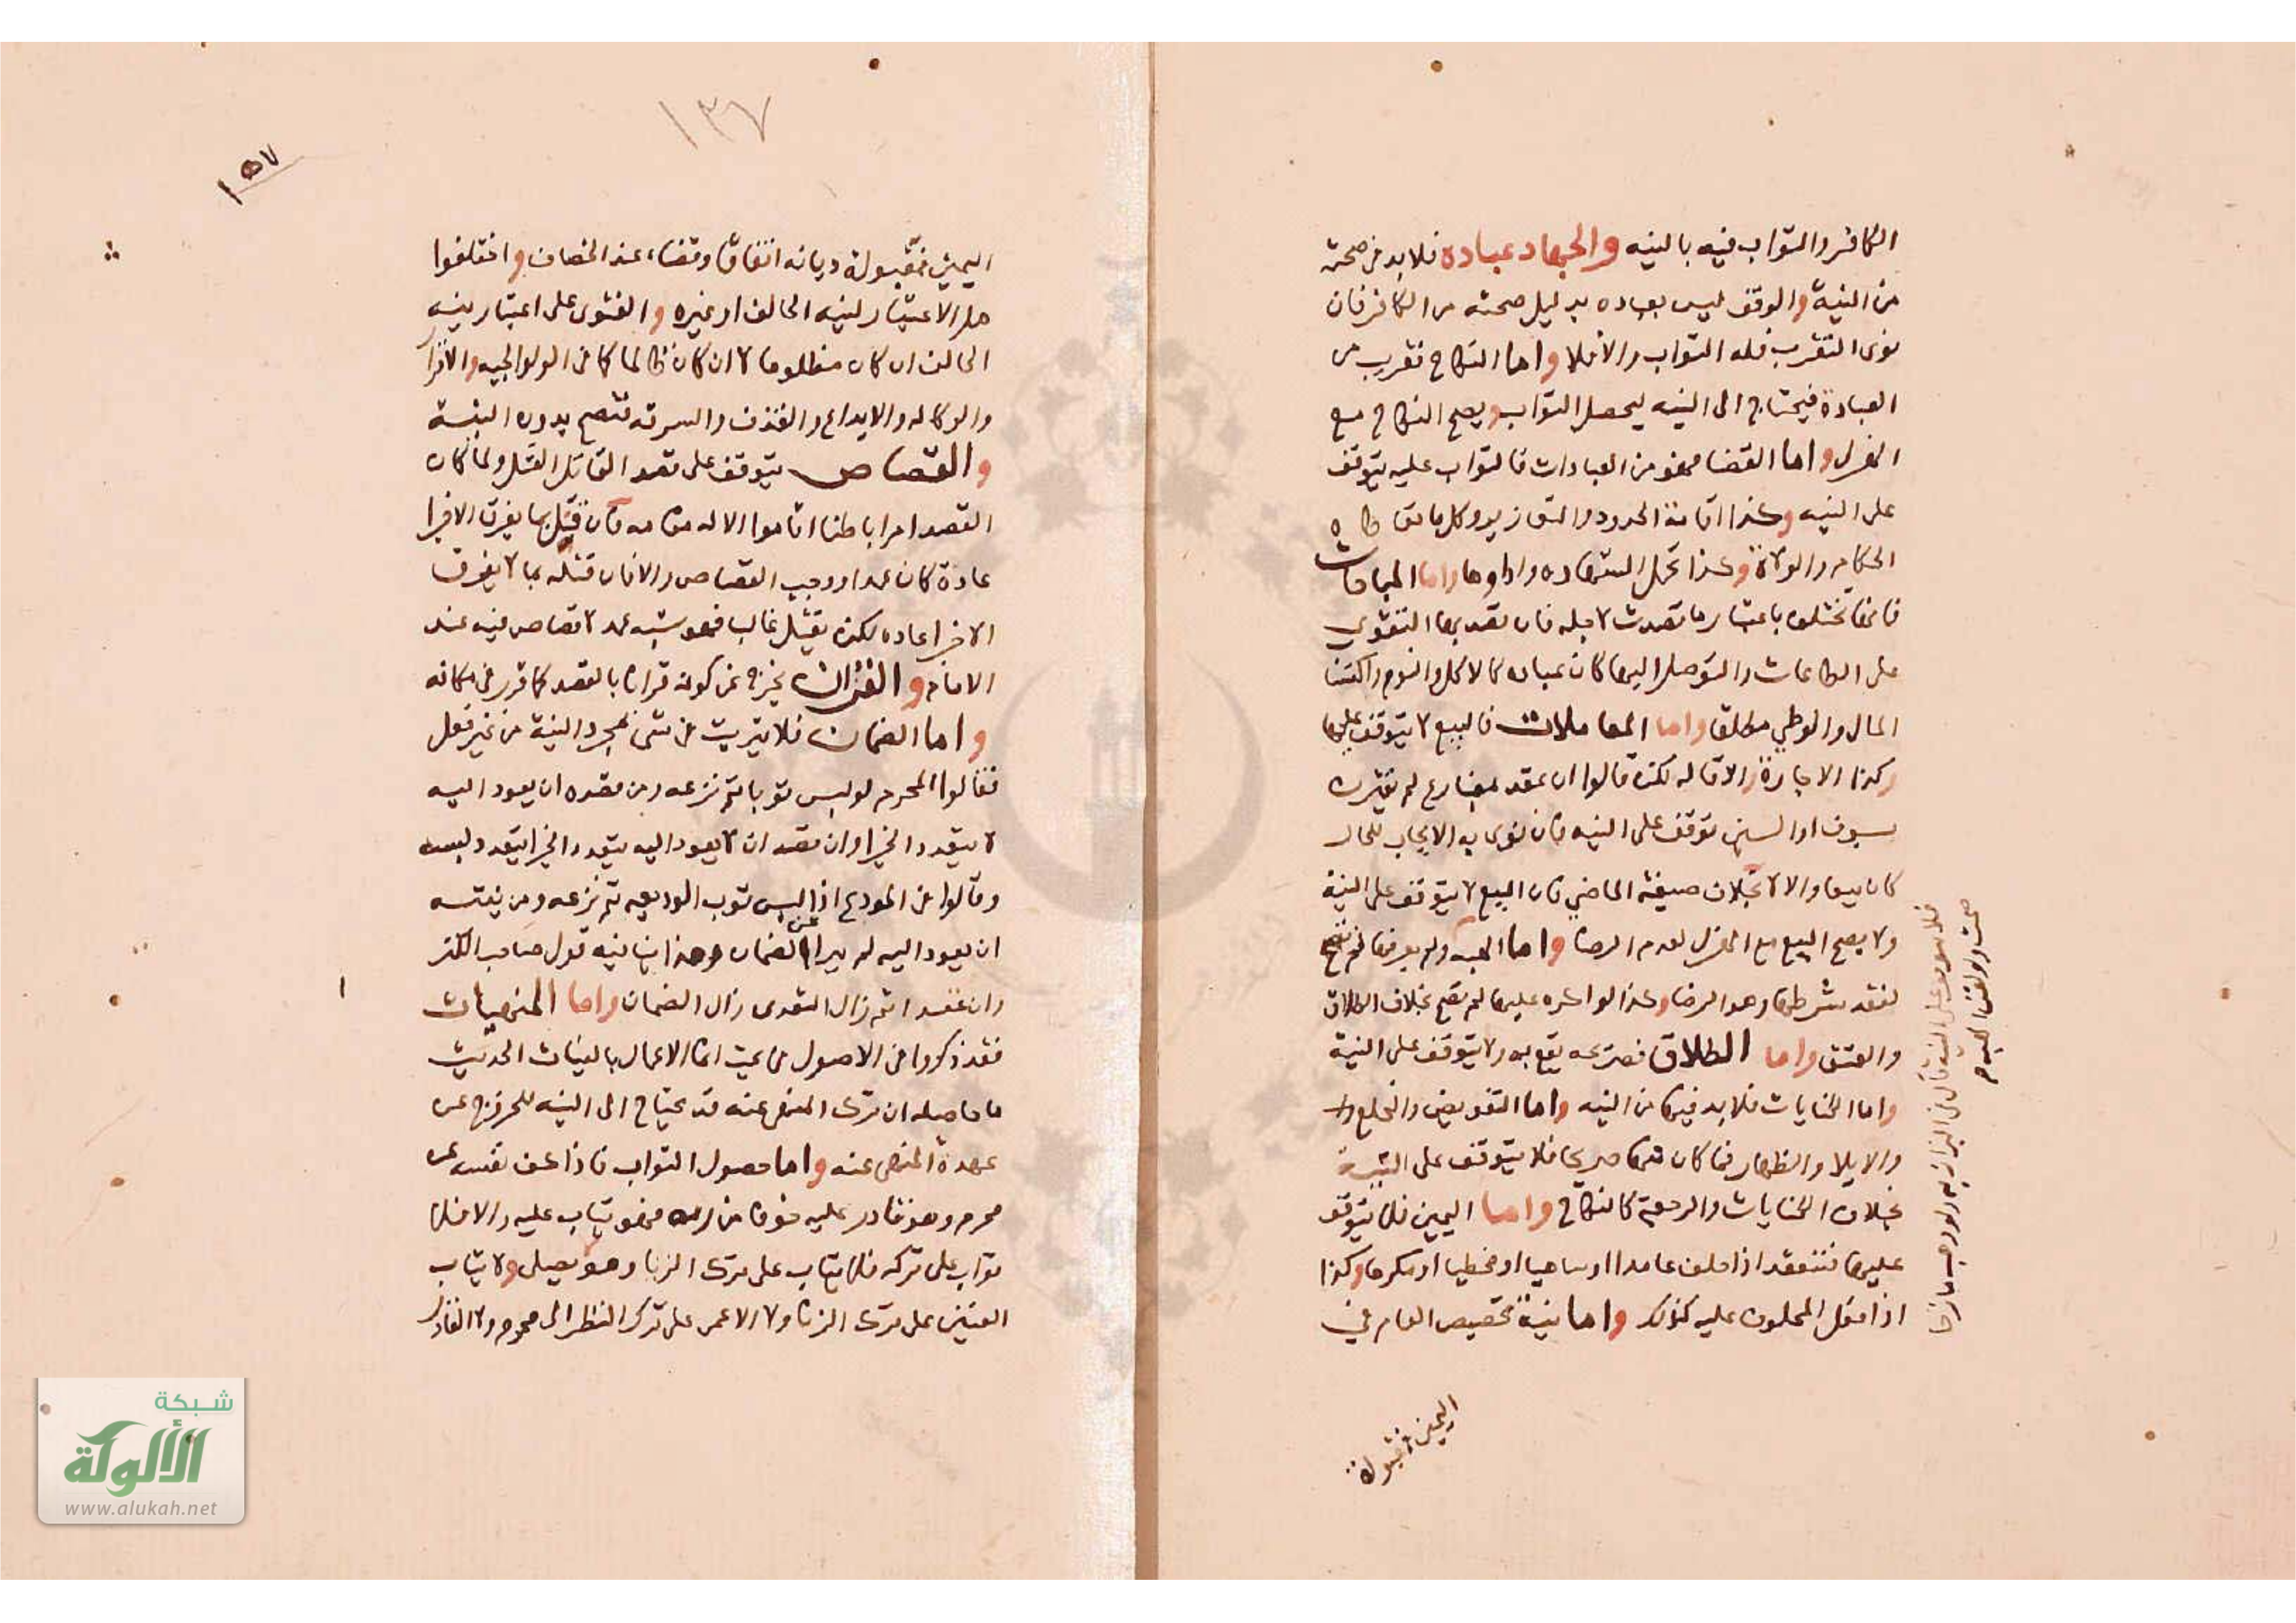 الكافر والثواب فيه بالنيه والجهاد عباده فلا بد في صحته
من النية والوقف ليس بعباده بدليل صحته من الكافر فان
نوى التقرب فله الثواب والا فلا واما النكاح تقرب من
العبادة فيحتاج الى النيه ليحصل الثواب ويصح النكاح مع
الهزل واما القضا فهو من العبادات فالثواب عليه يتوقف
على النيه وكذا اقامة الحدود والتعازير وكل ما تعاطاه
الحكام والولاة وكذا تحمل الشهاده واداوها واما المباحات
فانها تختلف باعتبار ما قصدت لاجله فان قصد بها التقوي
على الطاعات والتوصل اليها كان عباده كالاكل والنوم واكتسا
المال والوطي مطلقا واما المعاملات فالبيع لا يتوقف عليها
وكذا الاجارة والاقاله لكن قالوا ان عقد بمضارع لم يقترن
بسوف او السين توقف على النيه فان نوى به الايجاب للحال
كان بيعا والا لا بخلاف صيغة الماضي فان البيع لا يتوقف على النية
ولا يصح البيع مع الهزل لعدم الرضا واما الهبه ولم يعرفها لم تصح
لفقد شرطها وهو الرضا وكذا لو اكره عليها لم تصح بخلاف الطلاق
والعتق واما الطلاق فصريحه يقع به ولا يتوقف على النية
واما الكنايات فلا بد فيها من النيه واما التفويض والخلع
والايلا والظهار فما كان منها صريحا فلا يتوقف على النية
بخلاف الكنايات والرجعة كالنكاح واما اليمين فلا يتوقف
عليها فتنعقد اذا حلف عامدا او ساهيا او مخطيا او مكرها وكذا
اذا فعل المحلوف عليه كذلك واما نية تخصيص العام في
اليمين فمقبولة
اليمين فمقبولة ديانه اتفاقا وقضاء عند الخصاف واختلفوا
هل الاعتبار لنيه الحالف او غيره والفتوى على اعتبار نيه
الحالف ان كان مظلوما لا ان كان ظالما كما في الولوالجيه والاقرار
والوكاله والايداع والقذف والسرقه فتصح بدون النية
والقصاص يتوقف على قصد القاتل القتل ولما كان
القصد امرا باطنا اقاموا الاله مقامه فان قتل بما يفرق الاجزا
عادة كان عمدا ووجب القصاص والا فان قتله بما لا يفرق
الاجزا عاده لكنه يقتل غالبا فهو شبه عمد لا قصاص فيه عند
الامام والقران يخرج عن كونه قرانا بالقصد كما قرر في مكانه
واما الضمان فلا يترتب في شي بمجرد النية من غير فعل
فقالوا المحرم لو لبس ثوبا ثم نزعه ومن قصده ان يعود اليه
لا يتعدد الجزا وان قصد ان لا يعود اليه يتعدد الجزا بتعدد لبسه
وقالوا في المودع اذا لبس ثوب الوديعه ثم نزعه ومن نيته
ان يعود اليه لم يبرا عن الضمان وهذا ينافيه قول صاحب الكنز
واما المنهيات
فقد ذكروا في الاصول في بحث انما الاعمال بالنيات الحديث
ما حاصله ان ترك المنهي عنه قد يحتاج الى النيه للخروج عن
عهدة المنهي عنه واما حصول الثواب فاذا كف نفسه عن
محرم وهو قادر عليه خوفا من ربه فهو يثاب عليه والا فلا
ثواب على تركه فلا يثاب على ترك الزنا وهو يصلي ولا يثاب
العنين على ترك الزنا ولا الاعمى على ترك النظر الى محرم
١٣٧
١٥٧
شبكة
الألوكة
www.alukah.net